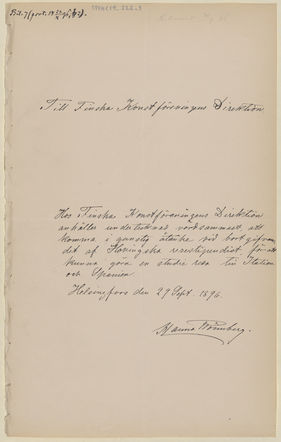 Till Finska Konstföreningens Direktion
Hos Finska Konstföreningens Direktion
anhåller undertecknad vördsammast att
komma i gunstig åtanke vid bortgifvan-
det af Hovingska resestipendiet för att
kunna göra en studie resa till Italien
och Spanien.
Helsingfors den 29 Sept. 1896.
Hanna Rönnberg.